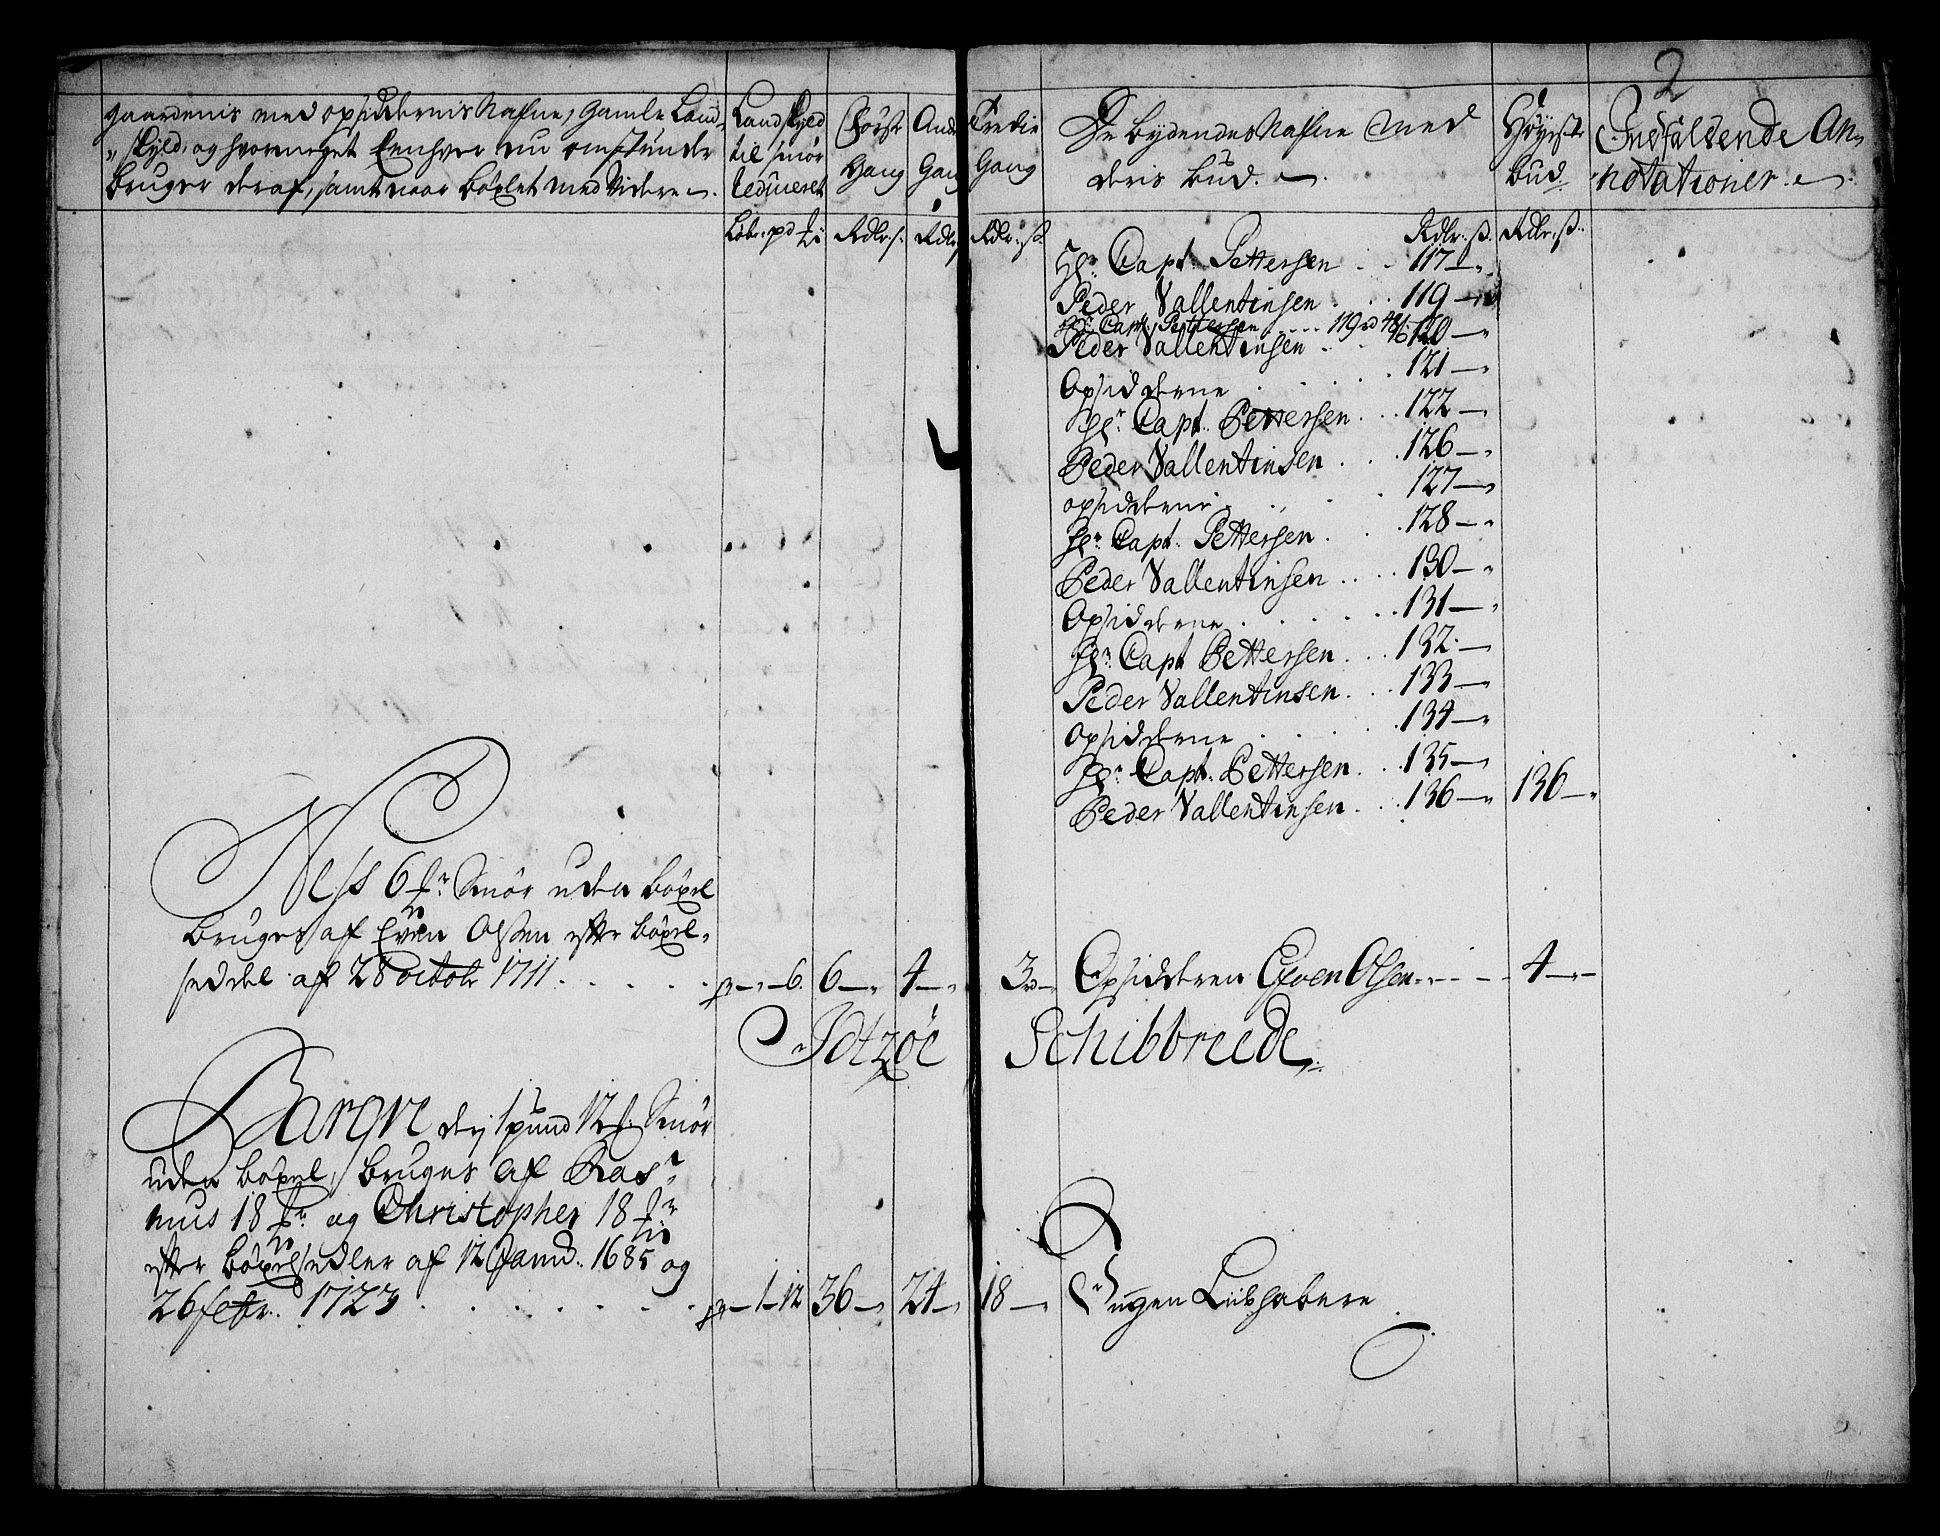 2
Gaardenis med opsiddernis Nafne, Gamle Land-
skyld, og hvormeget Eenhver nu omstunder
bruger deraf, samt naar böxlet med Videre.
Landskyld
til Smör
reduceret
Förste
Gang
Anden
Gang
Tredie
Gang
De bydendes Nafne med
deris bud.
Höyeste
bud.
Indfaldende An-
notationer.
Löbr: pd Rdlr: s: Rdlr: Rdlr: s Rdlr: s. Rdlr: s.
Hr: Capt: Pettersen . . 117 —
Peder Vallentinsen . . 119 —
Hr: Capt: Pettersen . . . . 119 rd 48 s
Peder Vallentinsen . . 120 —
Opsidderne . . . . 121 —
Hr: Capt: Pettersen . . . 122 —
Peder Vallentinsen . . . 126 —
opsidderne . . . . 127 —
Hr: Capt: Pettersen . . . 128 —
Peder Vallentinsen . . . . 130 —
Opsidderne . . . . . 131 —
Hr: Capt Pettersen . . . 132 —
Peder Vallentinsen . . . 133 —
Opsidderne . . . . 134 —
Hr: Capt: Pettersen . . . 135 —
Peder Vallentinsen . . . 136 — 136 —
Ness 6 Smör uden böxel
bruges af Even Olssen efter böxel-
seddel af 28 octobr 1711 . . . . . 6. 6 — 4 — 3 — Opsidderen Efven Olsen . . . 4 —
Schibbreede
Bargre dej 1 pund 12 Smör
uden böxel, bruges af Ras-
mus 18 og Christopher 18
efter böxelsedler af 12 Janu: 1685 og
26 febr: 1723 . . . . . . . 1 - 12 36 — 24 — 18 — Ingen Liebhabere